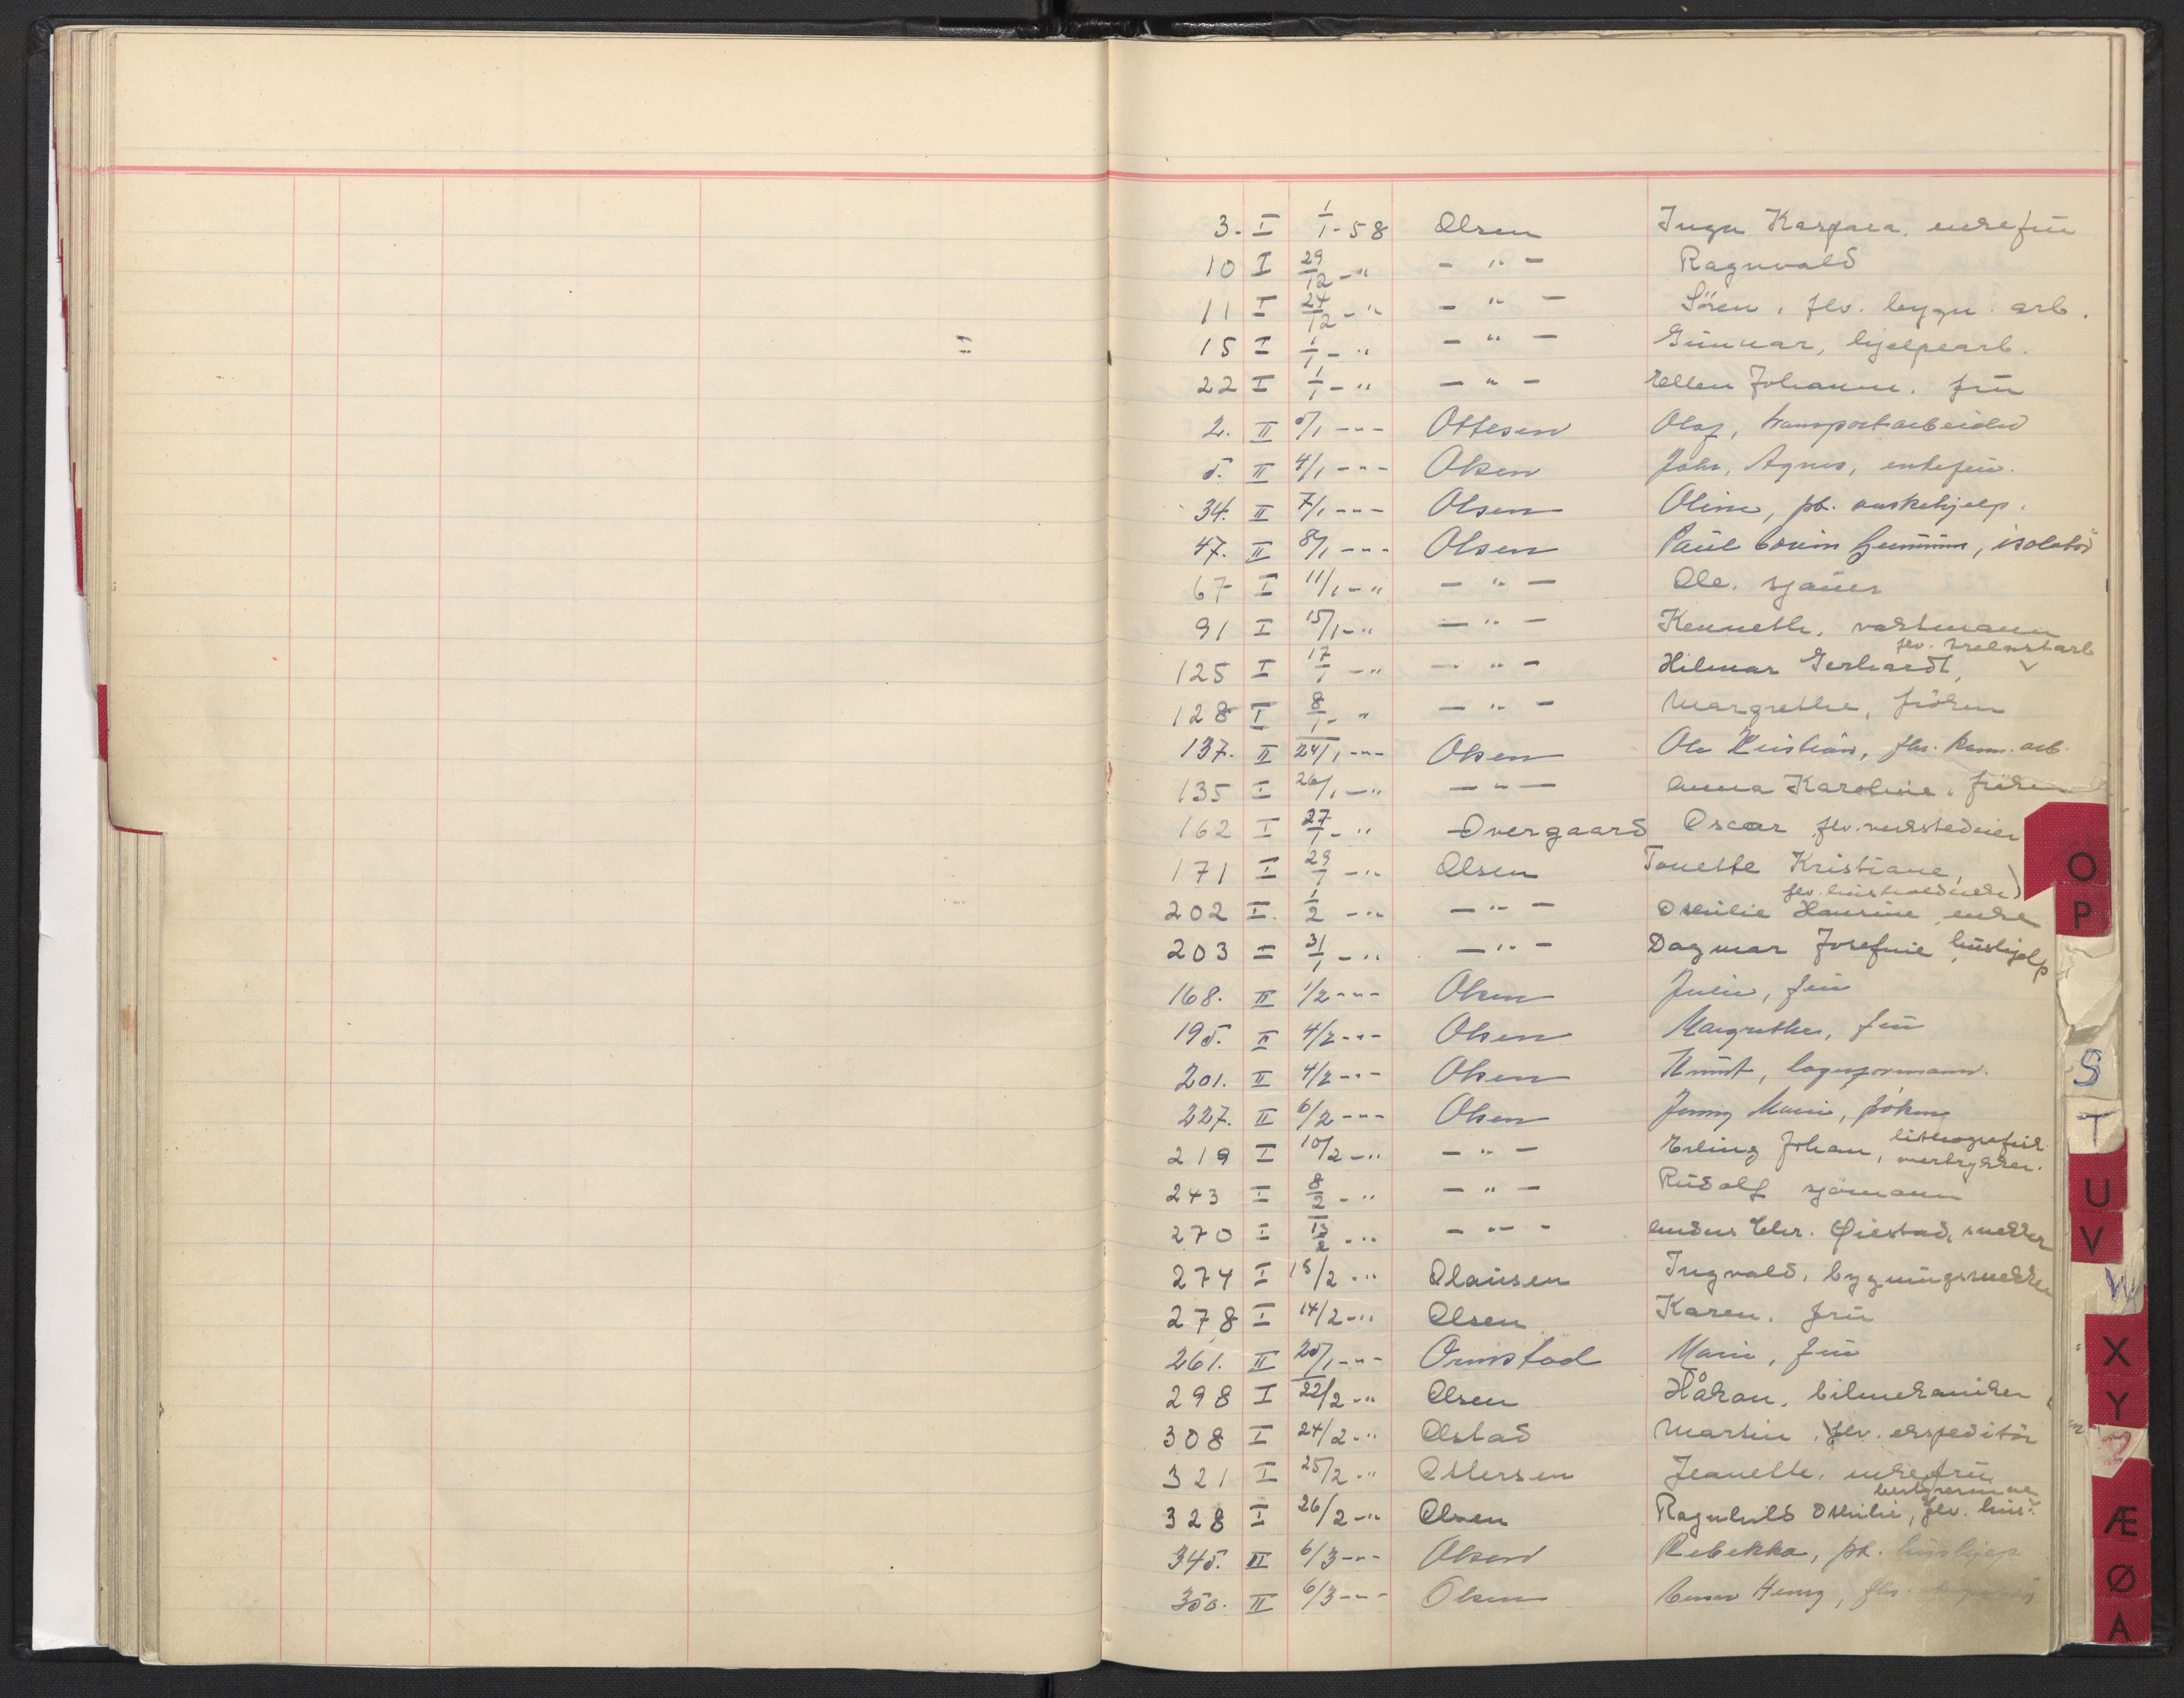 3. I 1/1-58 Olsen Inga Kaspara, enkefru
10 I 29/12 -" - " - Ragnvald
11 I 24/12 -" - " - Sören, flv. bygn. arb.
15 I 1/1 -" - " - Gunnar, hjelpearb.
22 I 1/1 -" - " - Ellen Johanne, fru
2. II 5/1 -"- Ottesen Olaf, transportarbeider
5. II 4/1 -"- Olsen Johs, Agnes, enkefru.
34. II 7/1 -"- Olsen Oline, pb. vaskehjelp.
47. II 8/1 -"- Olsen Paul, isolatör
67 I 11/1 -" - " - Ole, sjauer
91 I 15/1 -" - " - Kenneth, vaktmann
flv. trelastarb
125 I 17/1 -" - " - Hilmar Gerhardt,
128 I 8/1 -" - " - Margrethe, fröken
137. II 24/1 -"- Olsen Ole Kristian, flv. komm. arb.
135 I 26/1 -" - " - Anna Karoline, fröken
162 I 27/1 -" Overgaard Oscar flv. verkstedeier
171 I 29/1 -" Olsen Tonette Kristiane,
flv. husholderske)
202 I. 1/2 -" - " - Othilie Hansine enke
203 = 31/1 -" - " - Dagmar Josefine, hushjelp
168. II 1/2 -"- Olsen Julie, fru
195. II 4/2 -"- Olsen Margrethe, fru
201. II 4/2 -"- Olsen Knut, lagerformann.
227. II 6/2 -"- Olsen Jenny Marie, fröken
219 I 10/2 -" - " - Erling Johan, lithografisk
overtrykker.
243 I 8/2 -" - " - Rudolf sjömann
270 I 13/2 -" - " - Anders Chr. Øiestad, snekker
274 I 15/2 -" Olausen Ingvald, bygningssnekker
278 I 14/2 -" Olsen Karen, fru
261. II 20/1 -"- Ormstad Marie, fru
298 I 22/2 -" Olsen Håkon, bilmekaniker
308 I 24/2 -" Olstad Martin, flv. ekspeditör
321 I 25/2 -" Ottersen Jeanette, enkefru
bestyrerinne
328 I 26/2 -" Olsen Ragnhild Othilie, flv. hus-
345. II 6/3 -"- Olsen Rebekka, pb. hushjelp
350. II 6/3 -"- Olsen Henry, flv.
O
P
S
T
U
V
W
X
Y
Z
Æ
Ø
A